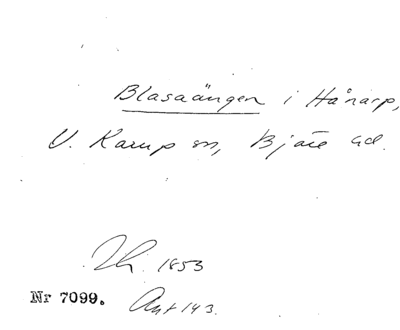 Blasaängen i Hånarp,
V. Karup sn, Bjäre hd.
Lh. 1853
Nr 7099. Akt 143.